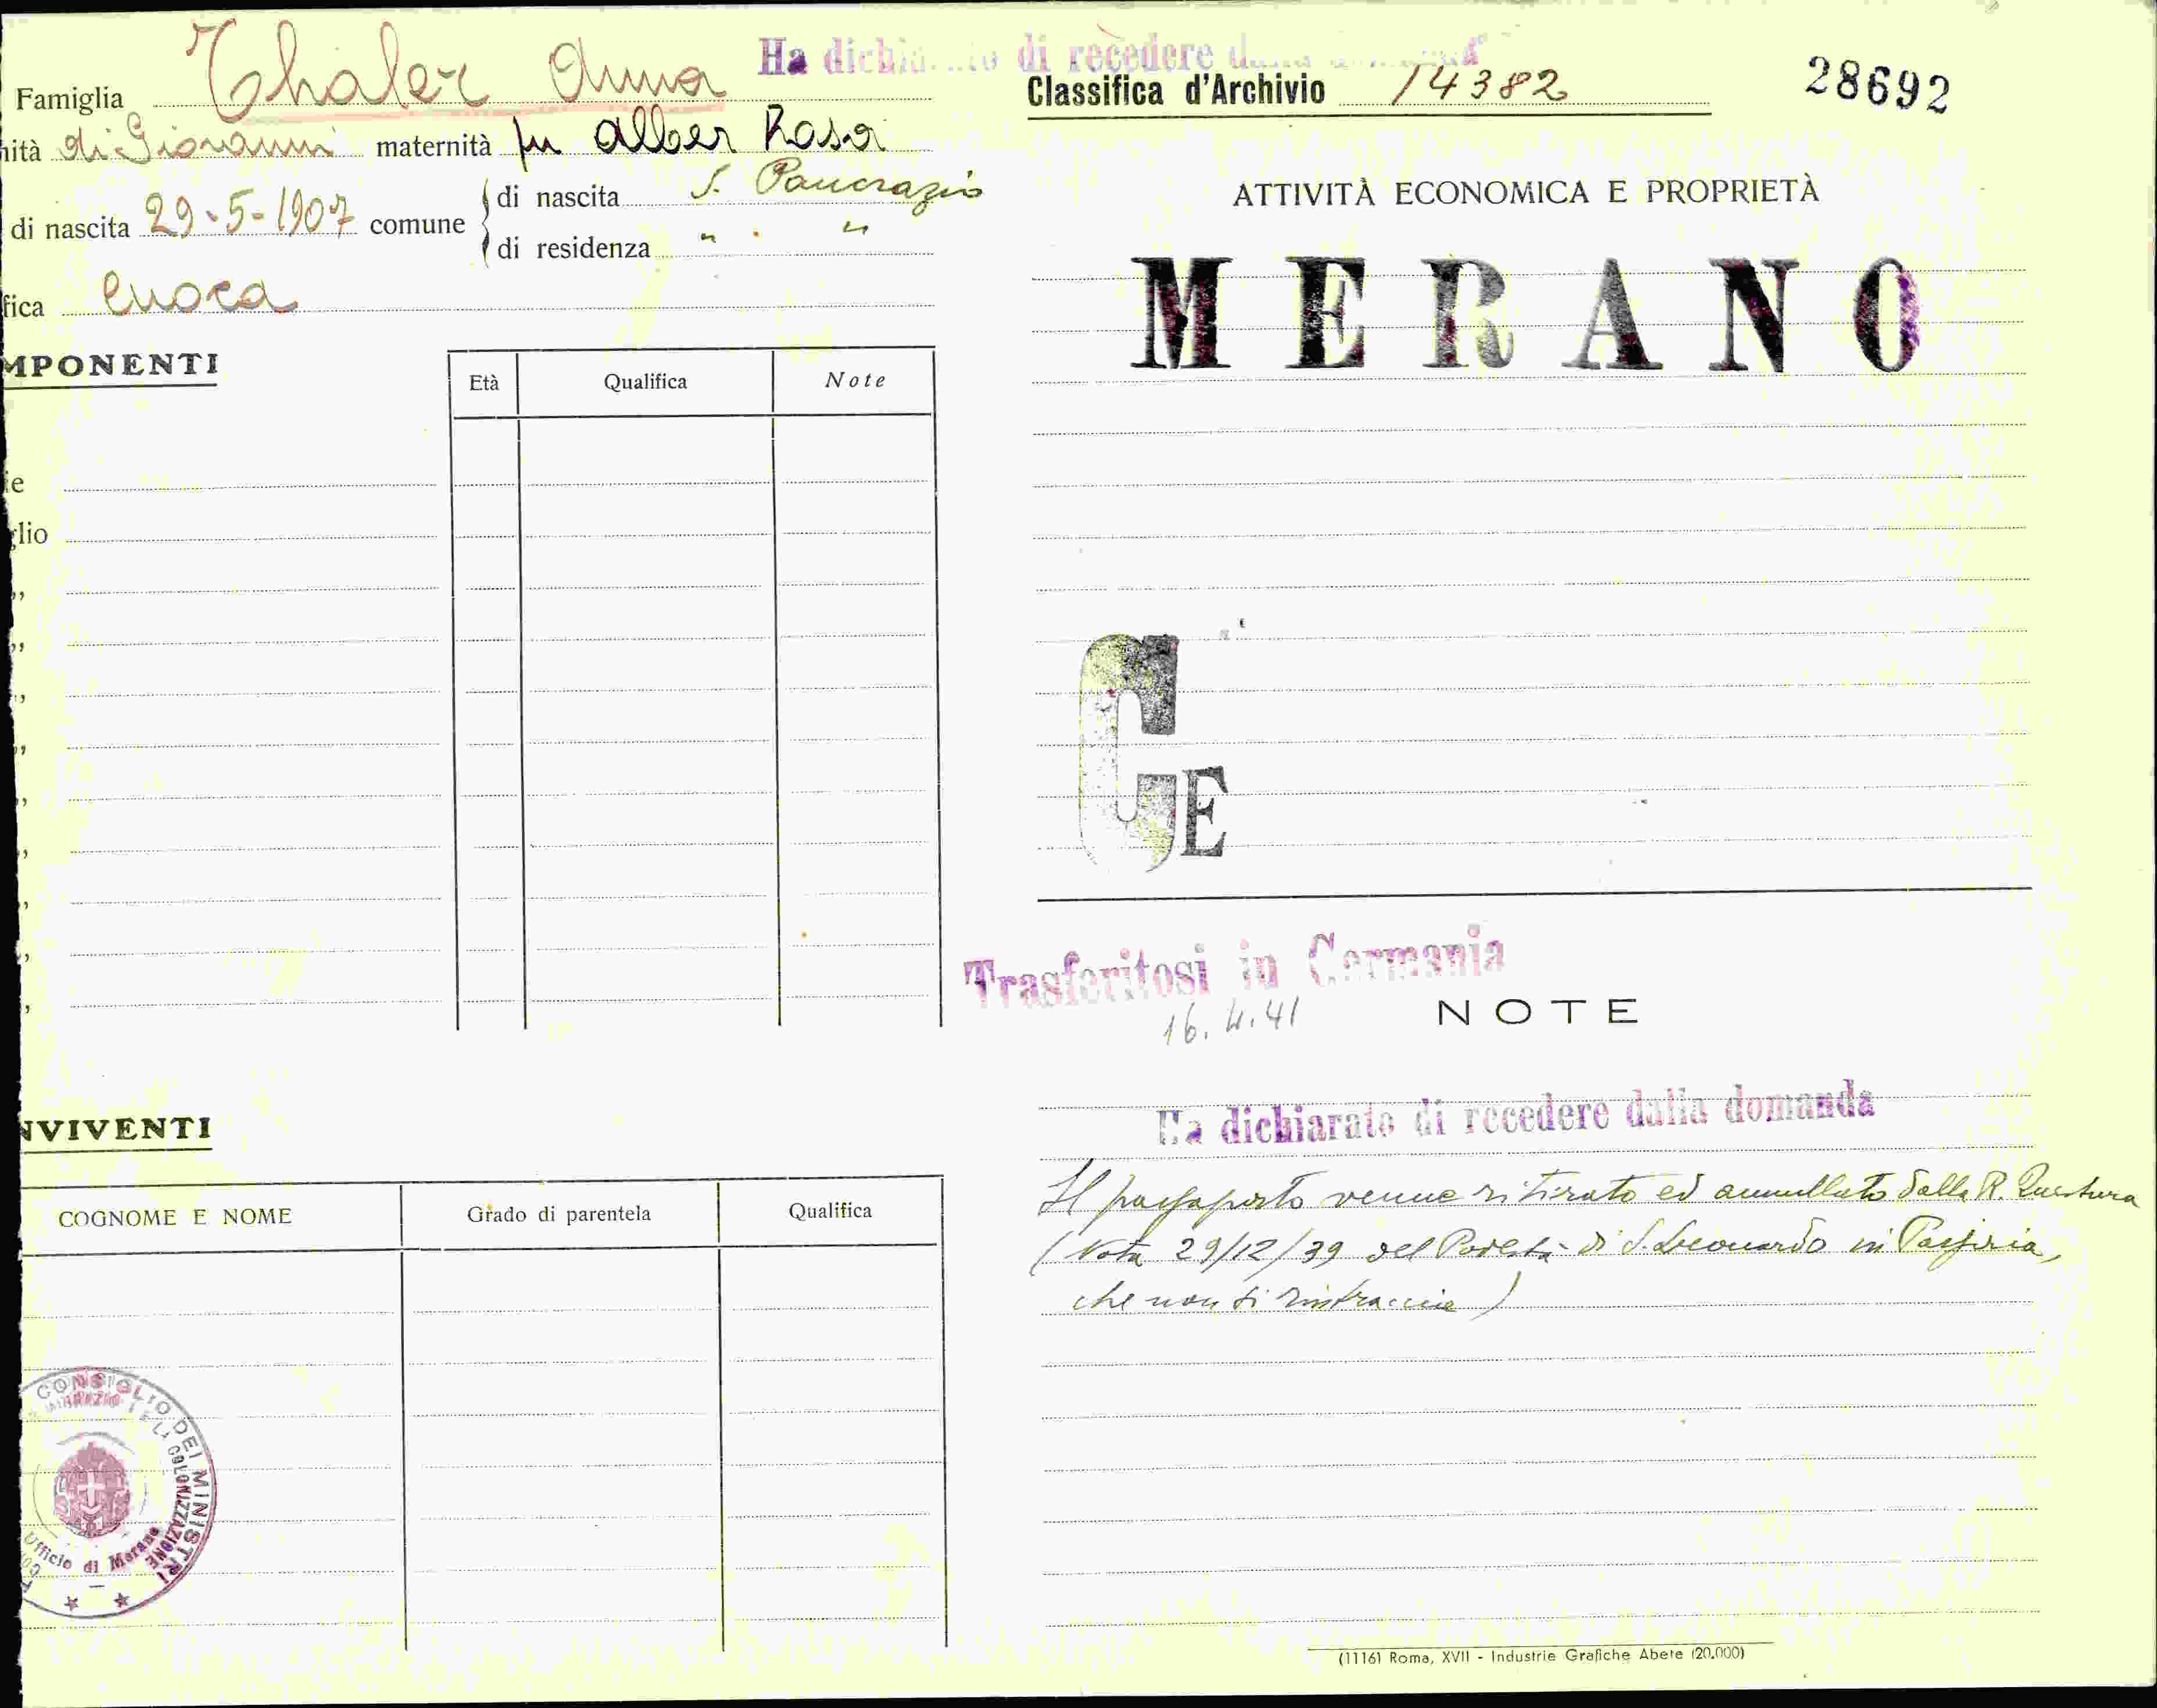 Ha dichiarato di recedere dalla domanda
Famiglia Thaler Anna
nità di Giovanni maternità fu Alber Rosa
di nascita 29-5-1907 comune di nascita S. Pancrazio
di residenza " " "
fica cuoca
MPONENTI
Età Qualifica Note
ie
glio
NVIVENTI
COGNOME E NOME Grado di parentela Qualifica
CONSIGLIO DEI MINISTRI
COLONIZZAZIONE
Ufficio di Merano
Classifica d'Archivio 14382
28692
ATTIVITÀ ECONOMICA E PROPRIETÀ
MERANO
G E
Trasferitosi in Germania
16.4.41
NOTE
Ha dichiarato di recedere dalla domanda
Il passaporto venne ritirato ed annullato dalla R. Questura
(Nota 29/12/39 del Podestà di S. Leonardo in Passiria,
che non si rintraccia)
(11161 Roma, XVII - Industrie Grafiche Abete (20.000)